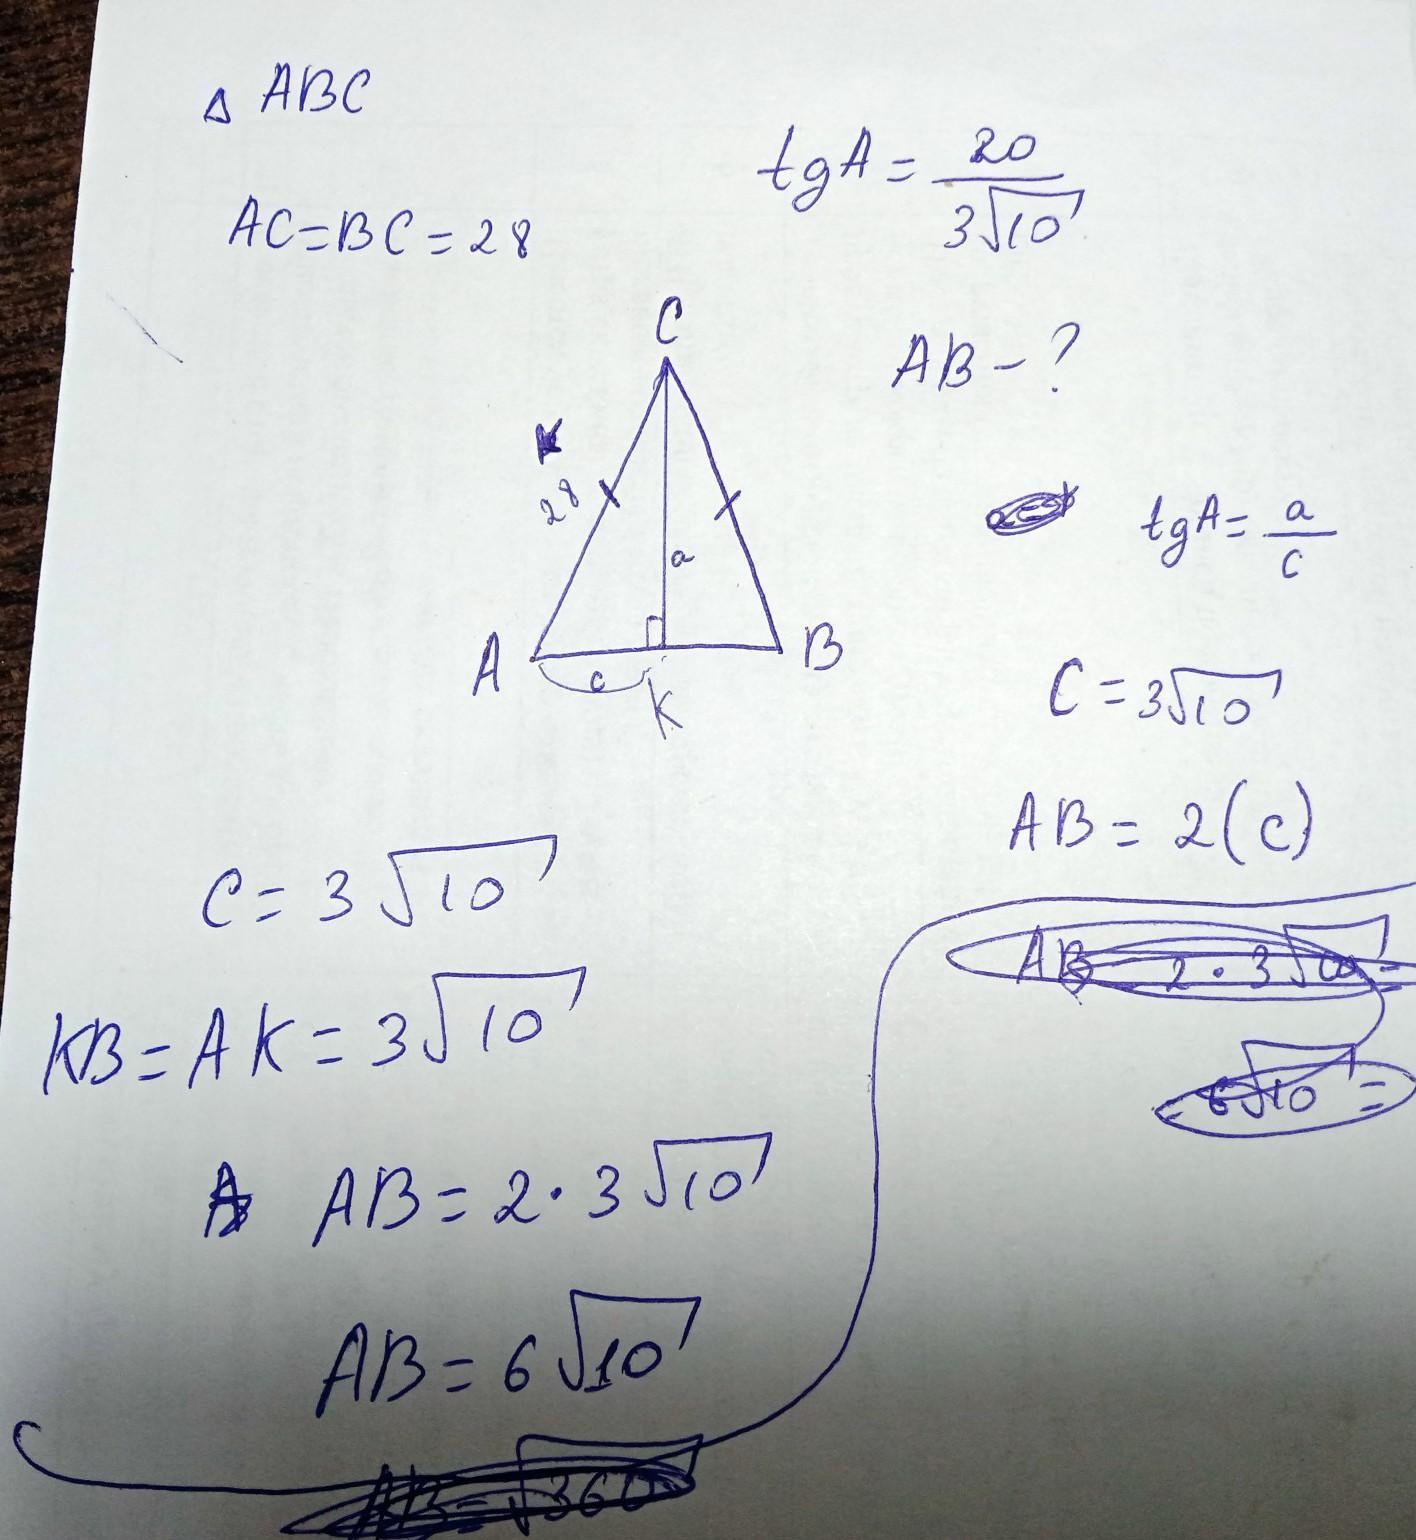 Δ ABC
tgA = 20/3√10
AC=BC=28
AB-?
C
28
a
A
B
c
K
tgA = a/c
C = 3√10
AB = 2(c)
AB = 2·3√10 =
= 6√10 =
C = 3√10
KB = AK = 3√10
AB = 2·3√10
AB = 6√10
AB = √360